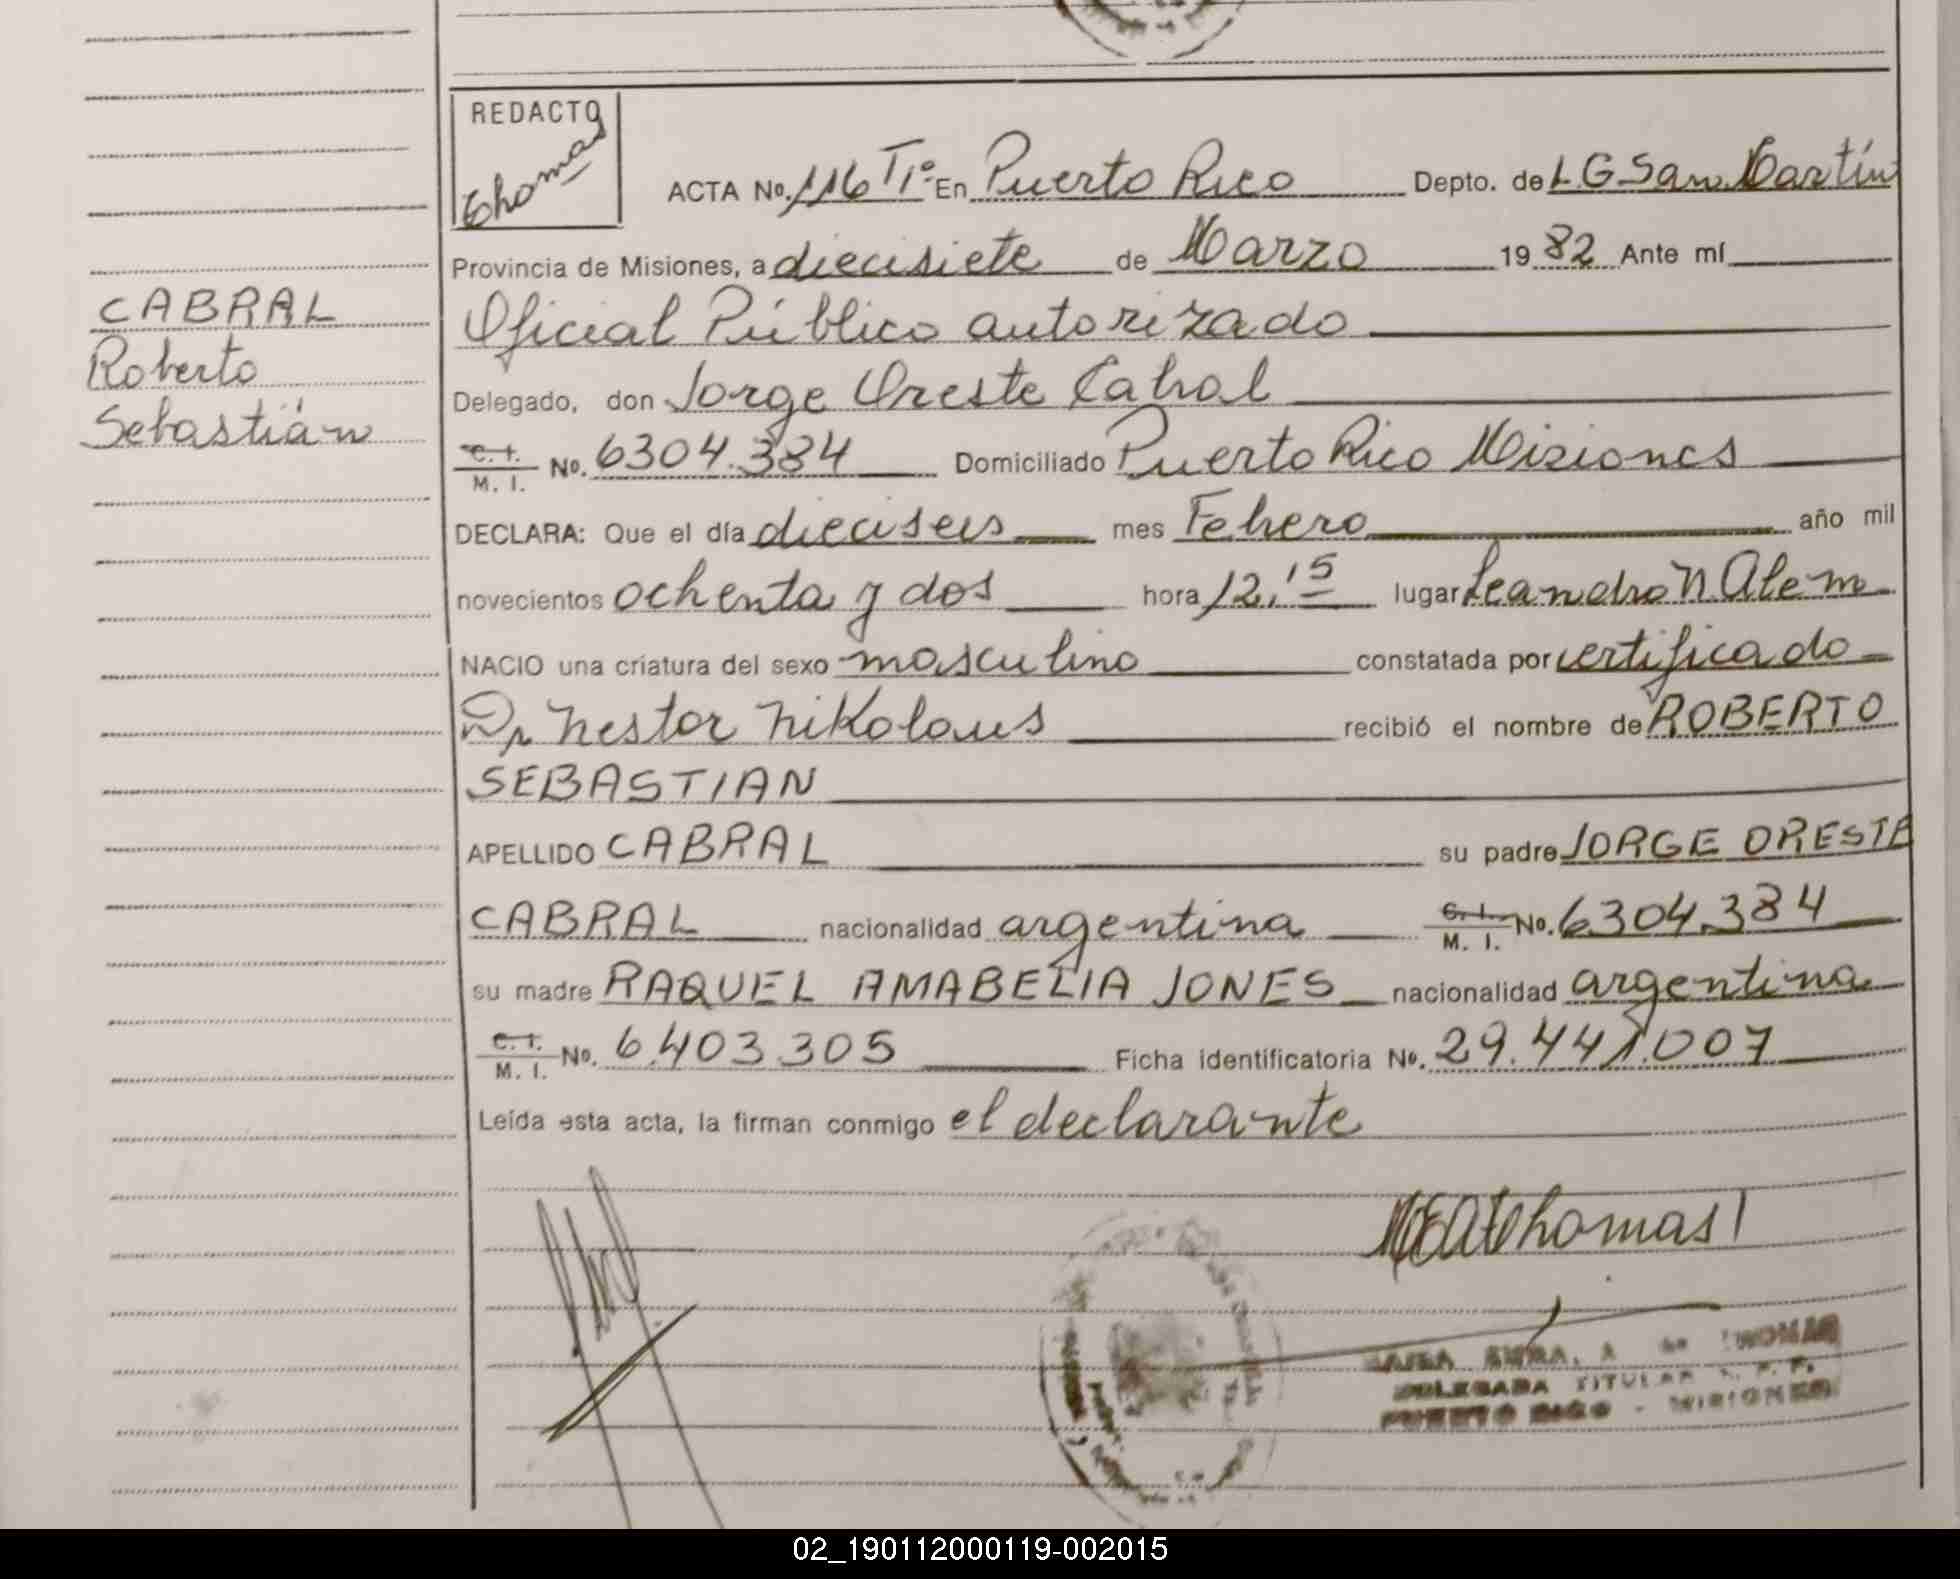 REDACTO
Thomas
ACTA No. 116 Tº En Puerto Rico Depto. de L G San Martín
Provincia de Misiones, a diecisiete de Marzo 1982 Ante mí
Oficial Público autorizado
Delegado, don Jorge Oreste Cabral
C. I. M. I. No. 6304.384 Domiciliado Puerto Rico Misiones
DECLARA: Que el día dieciseis mes Febrero año mil
novecientos ochenta y dos hora 12,15 lugar Leandro N. Alem
NACIO una criatura del sexo masculino constatada por certificado
Dr Nestor Nikolaus recibió el nombre de ROBERTO
SEBASTIAN
APELLIDO CABRAL su padre JORGE ORESTE
CABRAL nacionalidad argentina C. I. M. I. No. 6304.384
su madre RAQUEL AMABELIA JONES nacionalidad argentina
C. I. M. I. No. 6.403.305 Ficha identificatoria No. 29.441.007
Leída esta acta, la firman conmigo el declarante
CABRAL
Roberto
Sebastián
Thomas
THOMAS
DELEGADA TITULAR
PUERTO RICO - MISIONES
02_190112000119-002015